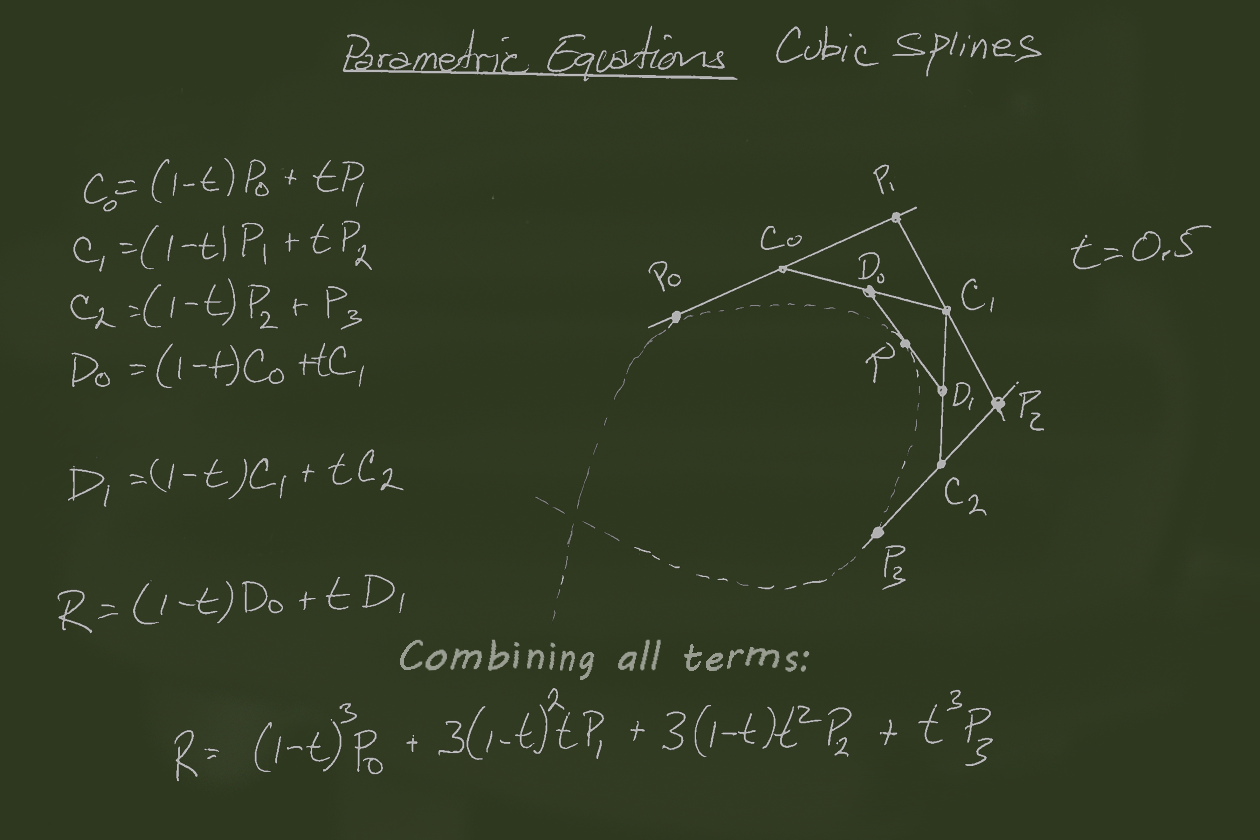 Parametric Equations Cubic Splines
C₀=(1-t)P₀+tP₁
C₁=(1-t)P₁+tP₂
C₂=(1-t)P₂+P₃
D₀=(1-t)C₀+tC₁
D₁=(1-t)C₁+tC₂
R=(1-t)D₀+tD₁
P₁
C₀
t=0.5
P₀
D₀
C₁
R
D₁
P₂
C₂
P₃
Combining all terms:
R=(1-t)³P₀+3(1-t)²tP₁+3(1-t)t²P₂+t³P₃